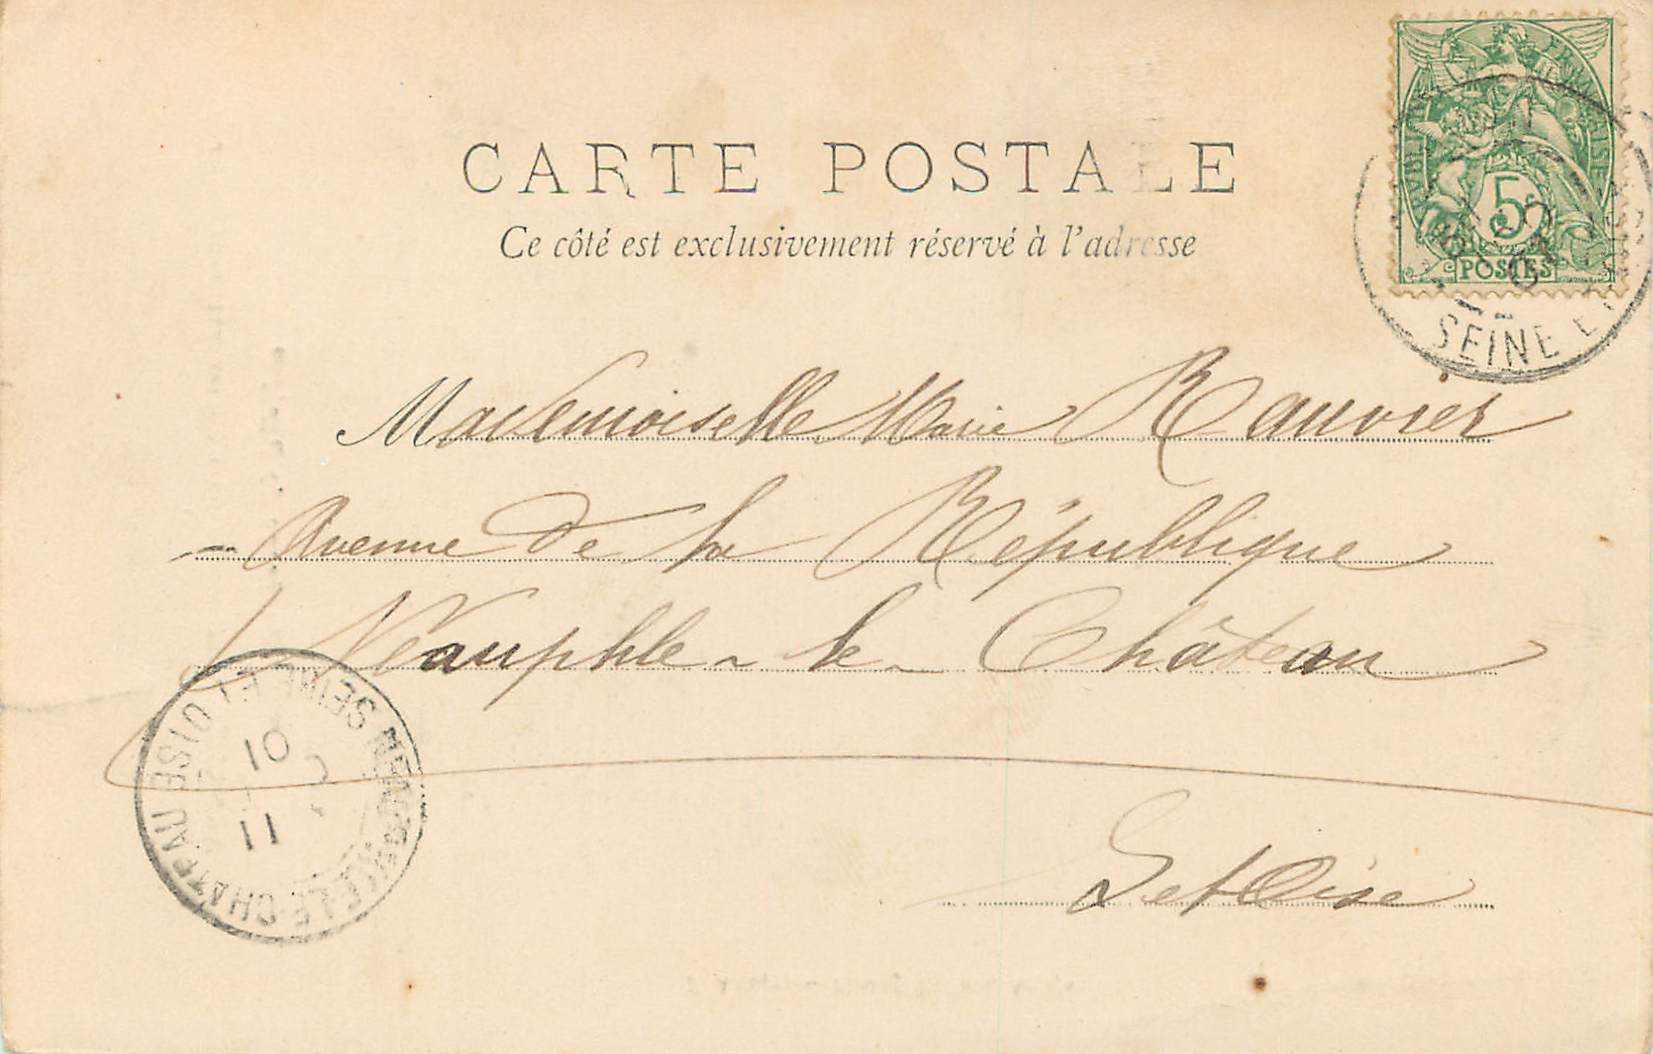 CARTE POSTALE
Ce côté est exclusivement réservé à l'adresse
5
POSTES
SEINE ET
Mademoiselle Marie
Avenue de la République
Neauphle-le-Château
S et Oise
NEAUPHLE LE CHATEAU SEINE ET OISE
11
01